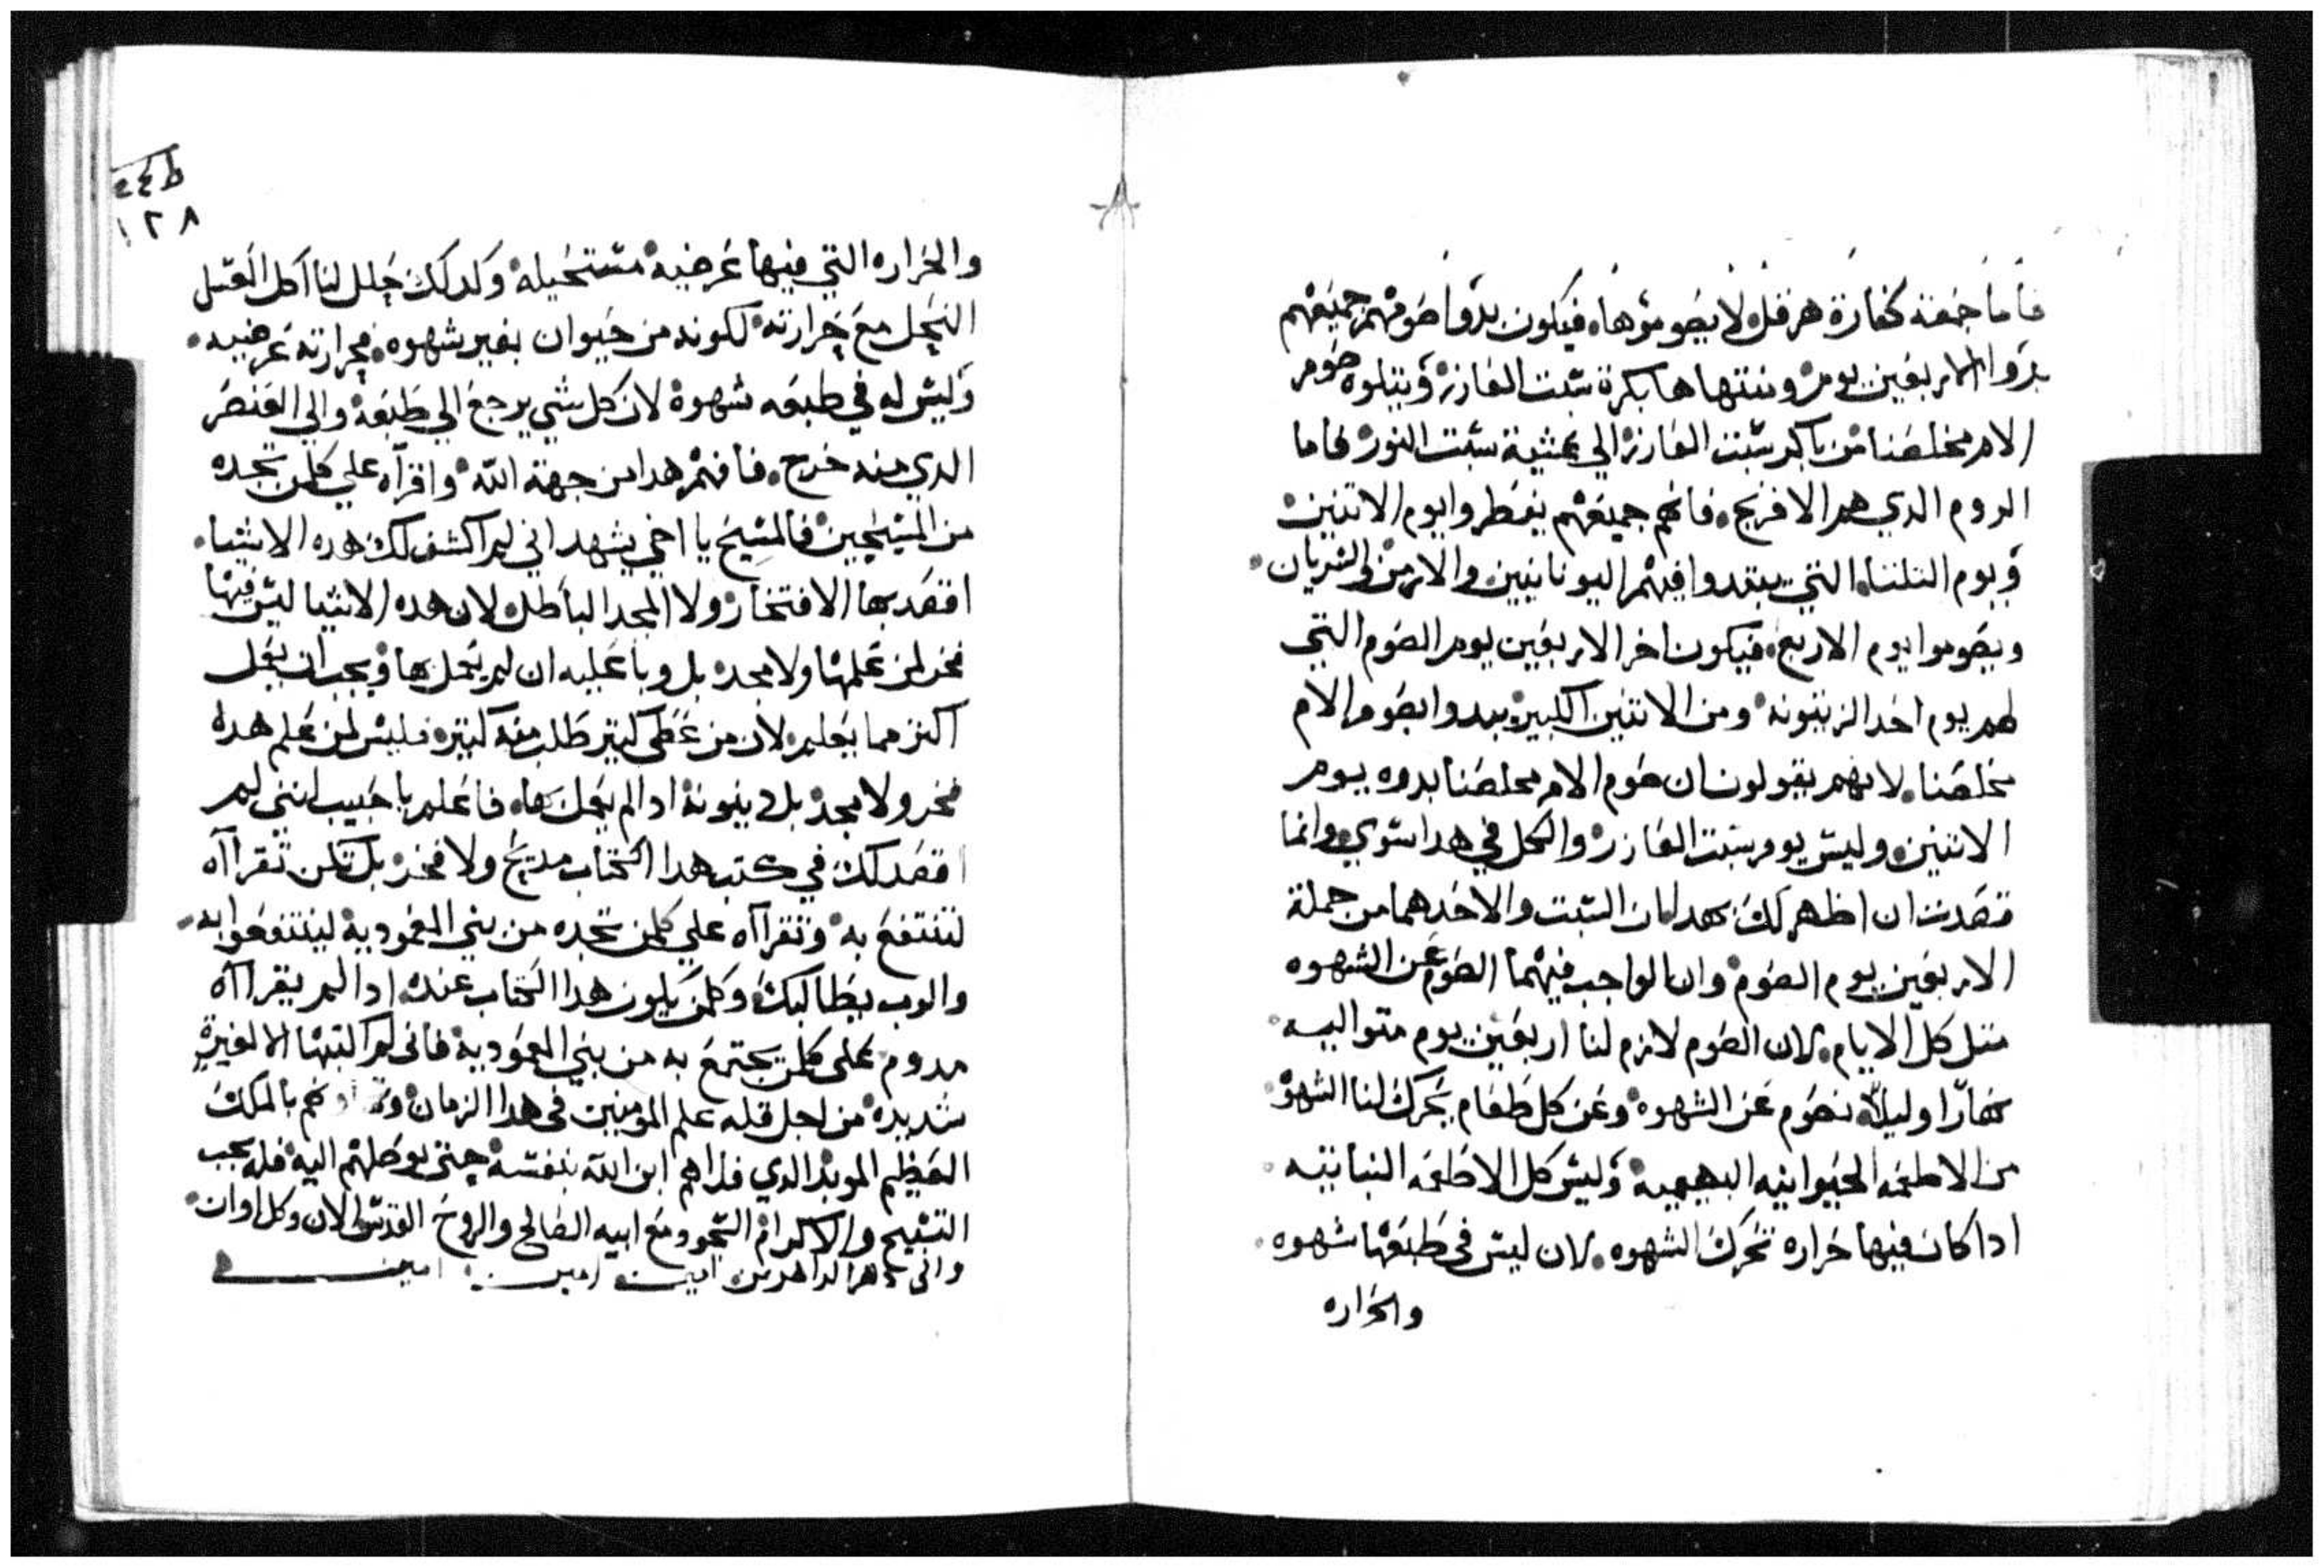 فاما جمعة كفارة هرقل لا يصوموها. فيكون بدوا صومهم جميعهم
بدوا الاربعين يوم ومنتهاها بكرة سبت العازر ويتلوه صوم
الام مخلصنا من باكر سبت العازر الي عشية سبت النور فاما
الروم الدي هم الافرنج. فانهم جميعهم يفطروا يوم الاتنين
ويوم التلتا. التي يبتدوا فيهم اليونانيين. والارمن والسريان.
ويصوموا يوم الاربع. فيكون اخر الاربعين يوم الصوم التي
لهم يوم احد الزيتونه ومن الاتنين الكبير يبدوا بصوم الام
مخلصنا. لانهم يقولون ان صوم الام مخلصنا بدوه يوم
الاتنين. وليس يوم سبت العازر والكل في هدا سوي. وانما
قصدت ان اظهر لك بهدا ان السبت والاحد هما من جملة
الاربعين يوم الصوم وان الواجب فيهما الصوم عن الشهوه
متل كل الايام. لان الصوم لازم لنا اربعين يوم متواليه
نهارا وليلا. نصوم عن الشهوه وعن كل طعام يحرك لنا الشهوة
من الاطعمه الحيوانيه البهيميه وليس كل الاطعمه النباتيه
ادا كان فيها حراره تحرك الشهوه. لان ليس في طبعها شهوه.
والحراره
ط٤٥
١٢٨
والحراره التي فيها عرضيه مستحيله وكدلك حلل لنا اكل العسل
النحل مع حرارته لكونه من حيوان بغير شهوه. فحرارته عرضيه.
وليس له في طبعه شهوة لان كل شي يرجع الي طبعه والي العنصر
الدي منه خرج. فافهم هدا من جهة الله واقراه علي كلمن تجده
من المسيحيين فالمسيح يا اخي يشهد اني لم اكشف لك هده الاشيا.
اقصد بها الافتخار ولا المجد الباطل. لان هده الاشيا ليس فيها
فخر لمن علمها ولا مجد بل وبا عليه ان لم يعمل بها ويجب ان يعمل
اكتر مما يعلم. لان من عطي كتير طلب منه كتير. فليس لمن علم هده
فخر ولا مجد بل دينونة ادا لم يعمل بها. فاعلم يا حبيب انني لم
اقصد لك في كتب هدا الكتاب مديح ولا فخر بل لكن تقراه
لتنتفع به وتقراه علي كلمن تجده من بني المعمودية لينتفعوا به.
والرب يطالبك وكلمن يكون هدا الكتاب عنده. ادا لم يقراه
مدوم علي كلمن يجتمع به من بني المعمودية فاني لم اكتبها الا لغيرة
شديدة من اجل قله علم المومنين في هدا الزمان بالملك
العظيم الموبد الدي فداهم ابن الله بنفسه حتي يوصلهم اليه فله يجب
التسبيح والاكرام السجود مع ابيه الصالح والروح القدس الان وكل اوان.
والي دهر الداهرين امين امين امين